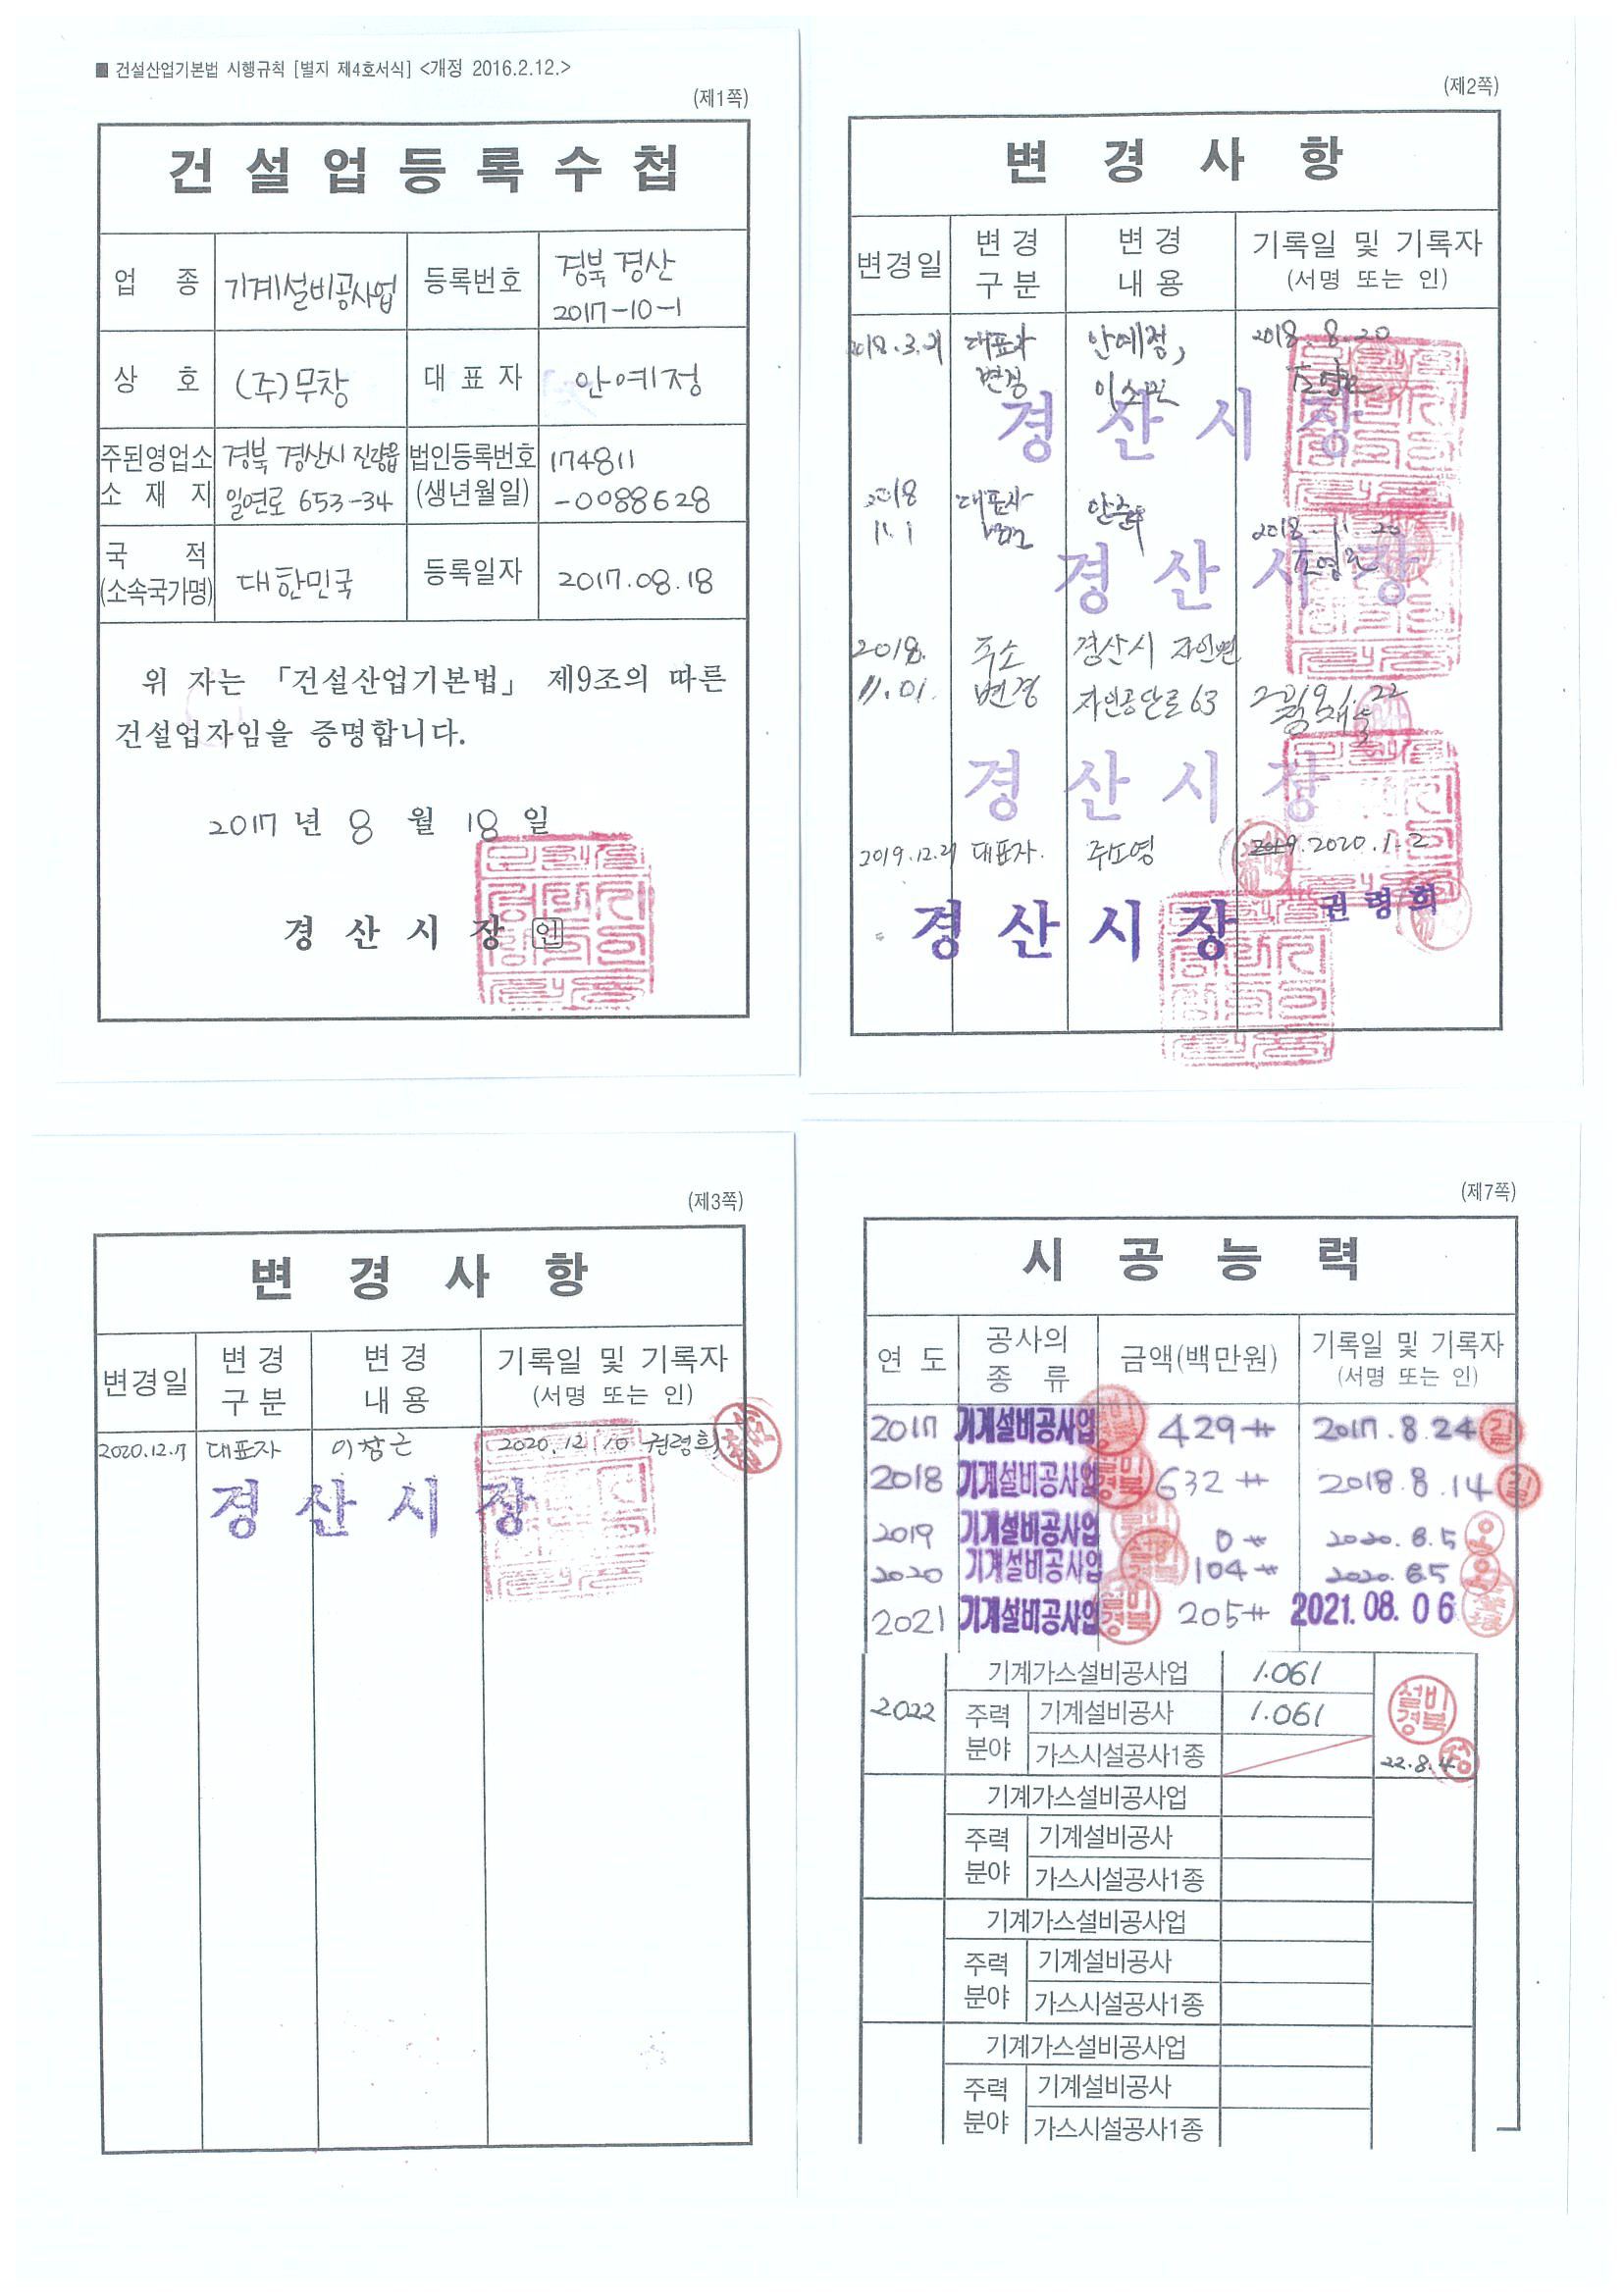 ■ 건설산업기본법 시행규칙 [별지 제4호서식] <개정 2016.2.12.>
(제1쪽)
건 설 업 등 록 수 첩
업 종 기계설비공사업 등록번호 경북 경산 2017-10-1
상 호 (주)무창 대 표 자 안예정
주된영업소 소 재 지 경북 경산시 진량읍 일연로 653-34 법인등록번호 (생년월일) 174811 -0088628
국 적 (소속국가명) 대한민국 등록일자 2017.08.18
위 자는 「건설산업기본법」 제9조의 따른
건설업자임을 증명합니다.
2017 년 8 월 18 일
경 산 시 장 인
(제2쪽)
변 경 사 항
변경일 변 경 구 분 변 경 내 용 기록일 및 기록자 (서명 또는 인)
2018.3.21 대표자 변경 안예정, 2018.8.20
경 산 시 장
2018 11.1 대표자 변경 2018.11.20
경 산 시 장
2018. 11.01. 주소 변경 경산시 자인면 자인공단로 63
경 산 시 장
2019.12.21 대표자. 주도영 2020.1.2
경 산 시 장 권 령 희
(제3쪽)
변 경 사 항
변경일 변 경 구 분 변 경 내 용 기록일 및 기록자 (서명 또는 인)
2020.12.7 대표자 이창근 2020.12.10 권령희
경 산 시 장
(제7쪽)
시 공 능 력
연 도 공사의 종 류 금액(백만원) 기록일 및 기록자 (서명 또는 인)
2017 기계설비공사업 429# 2017.8.24 길
2018 기계설비공사업 632# 2018.8.14
2019 기계설비공사업 0# 2020.8.5 오
2020 기계설비공사업 104# 2020.8.5 오
2021 기계설비공사업 설비 경북 205# 2021.08.06
기계가스설비공사업 1.061
2022 주력 분야 기계설비공사 1.061 설비 경북
가스시설공사1종 22.8.4
기계가스설비공사업
주력 분야 기계설비공사
가스시설공사1종
기계가스설비공사업
주력 분야 기계설비공사
가스시설공사1종
기계가스설비공사업
주력 분야 기계설비공사
가스시설공사1종